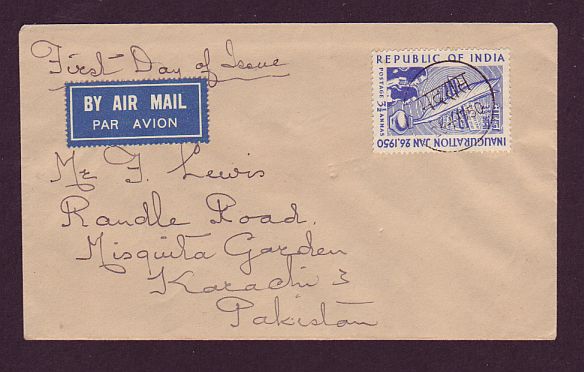 First Day of Issue
BY AIR MAIL
PAR AVION
REPUBLIC OF INDIA
POSTAGE 3½ ANNAS
INAUGURATION JAN 26, 1950
Mr F. Lewis
Randle Road.
Misquita Garden
Karachi 3
Pakistan